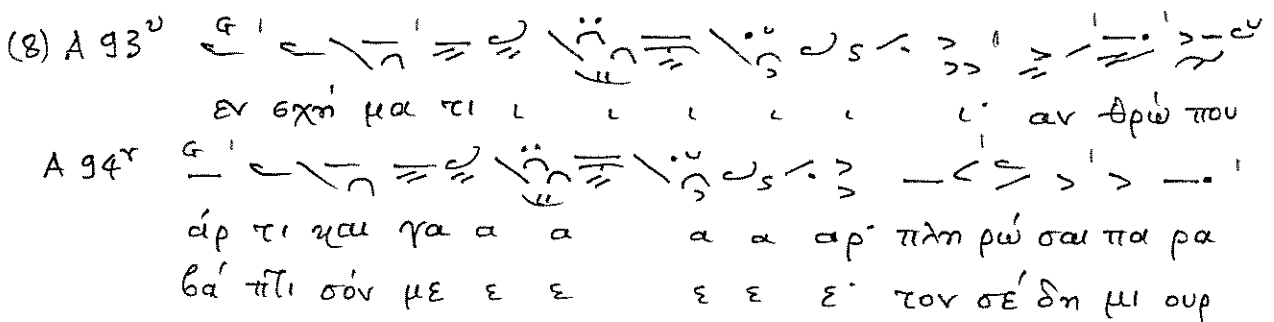 (8) A 93ᵛ
εν σχή μα τι ι ι ι ι ι ι· αν θρώ που
A 94ʳ
άρ τι και γα α α α α αρ· πλη ρώ σαι πα ρα
βά πτι σόν με ε ε ε ε ε· τον σέ δη μι ουρ